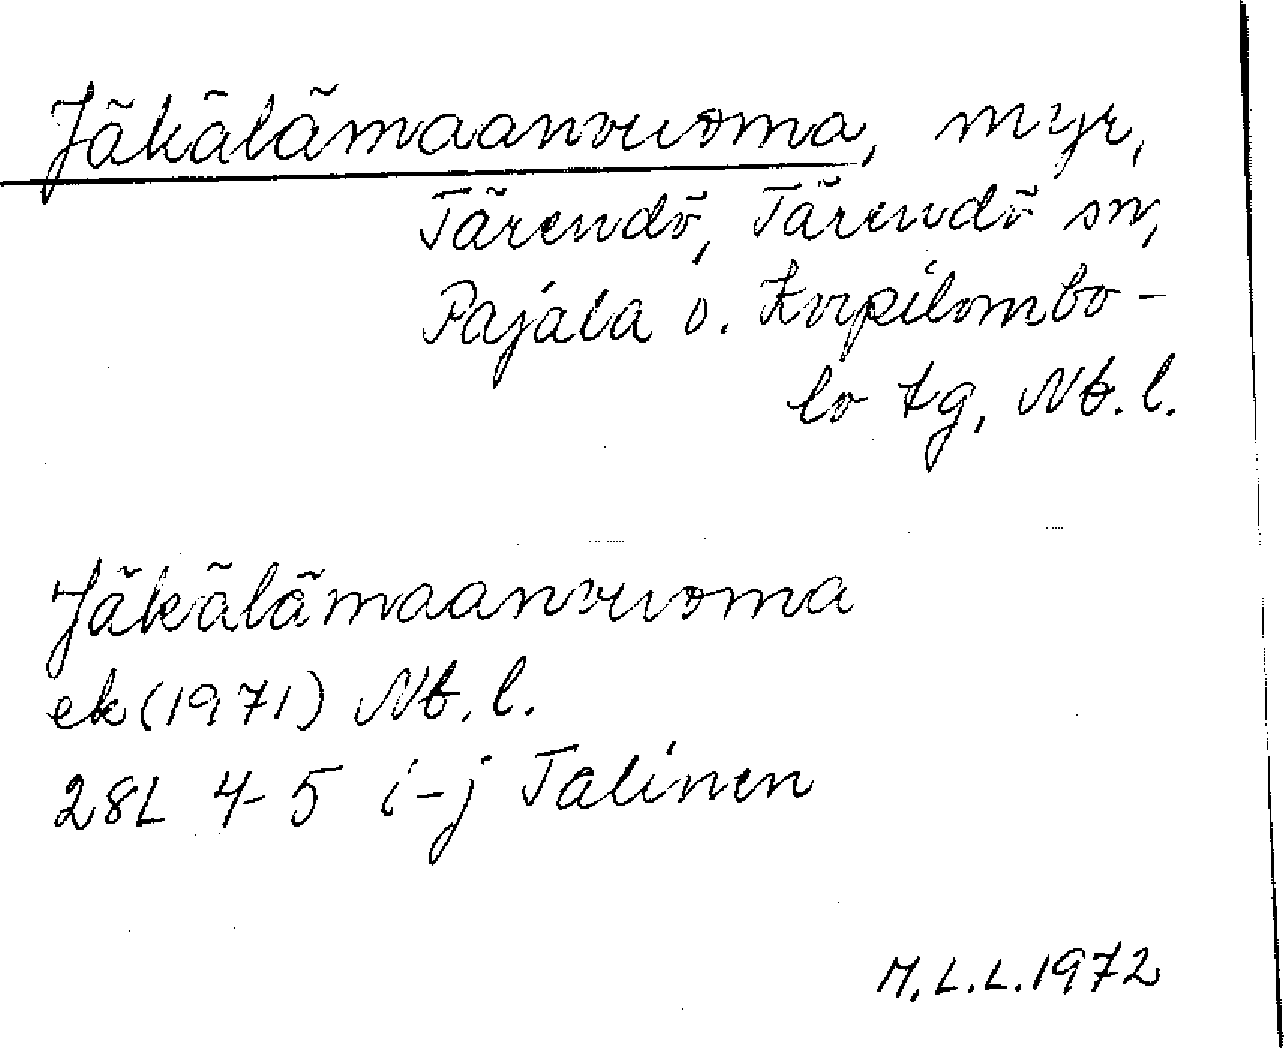 Jäkälämaanvuoma, myr,
Tärendö, Tärendö sn,
Pajala o. Korpilombo-
lo tg, Nb. l.
Jäkälämaanvuoma
ek (1971) Nb. l.
28L 4-5 i-j Talinen
M. L. L. 1972